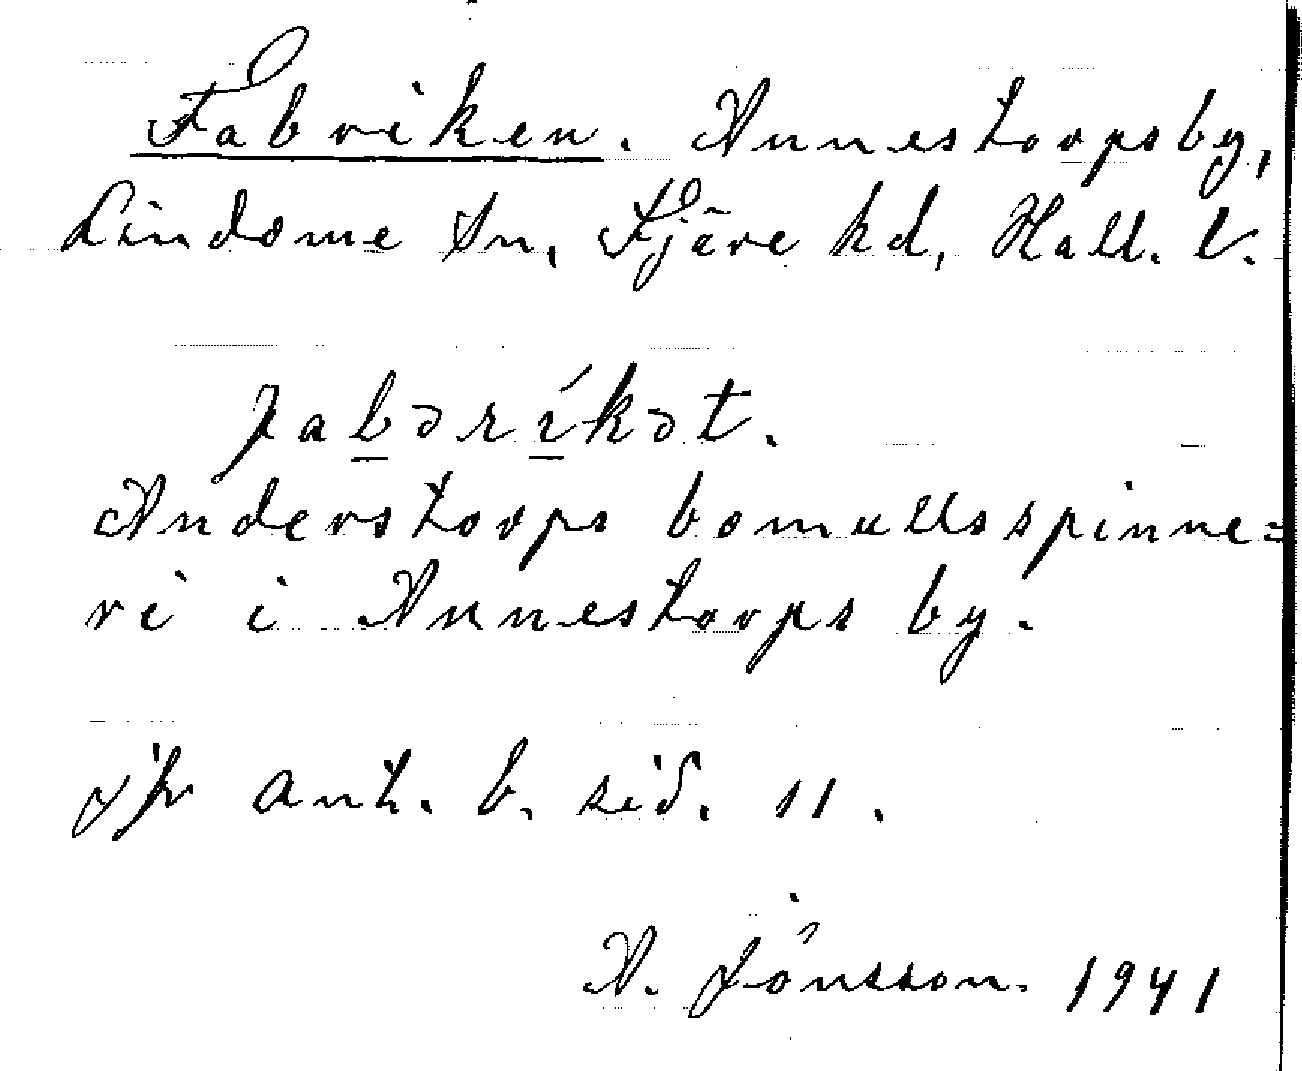 Fabriken. Annestorps by,
Lindome sn, Fjäre hd, Hall. l.
fabəríkət.
Anderstorps bomullsspinne=
ri i Annestorps by.
jfr ant. b. sid. 11.
A. Jónsson. 1941